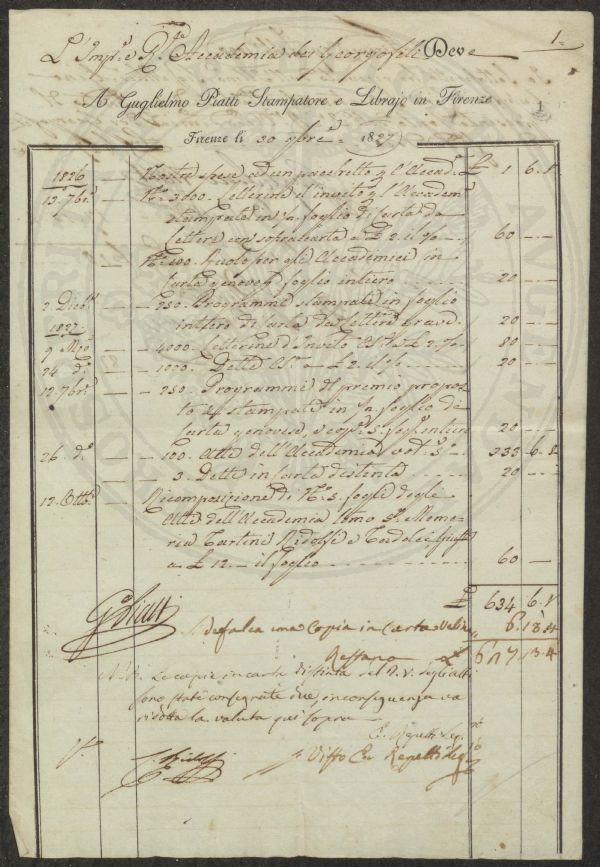 1.
L'Imp.e R.le Accademia dei Georgofili Deve
A Guglielmo Piatti Stampatore e Librajo in Firenze
1
Firenze li 30 9bre 1827
1826 — Nostre spese ad un pacchetto l'Accad.a £ 1 6. 8
13. 7bre — N.o Letterine d'invito l'Accadem.
stampate in foglio di carta da
lettere con sopracarta a £ 2. il % 60 —
N.o 400. Ruolo per gli Accademici in
carta genovese foglio intiero 20 —
2. Dicbre — 250. Programmi stampati in foglio
intero di carta da lettere 20 —
1827.
9 Mag.o — 4000. Letterine d'Invito 2. % 80 —
24 d.o — 1000. Dette a £ 2. il % 20 —
12. 7bre — 250. Programmi di premio propos
to stampati in foglio di
carta genovese, intiero 20 —
26. d.o — 100. Atti dell'Accademia vol. 5.o 333 6. 8
3. Dette in carta distinta 20 —
12. Ottbre Ricomposizione di N.o 5. fogli degli
Atti dell'Accademia tomo 5.o Memo
ria Tartini Ridolfi e
a £ 12. — il foglio 60 —
£ 634 6. 8
GPiatti
Defalca una Copia in Carta Velina 6. 13. 4
Restano 627. 13. 4
N.B. Le copie in carta distinta del N. V. degli atti
sono state consegnate due, in conseguenza va
ridotta la valuta qui sopra
E. Repetti
V.o
C. Ridolfi
Visto E. Repetti